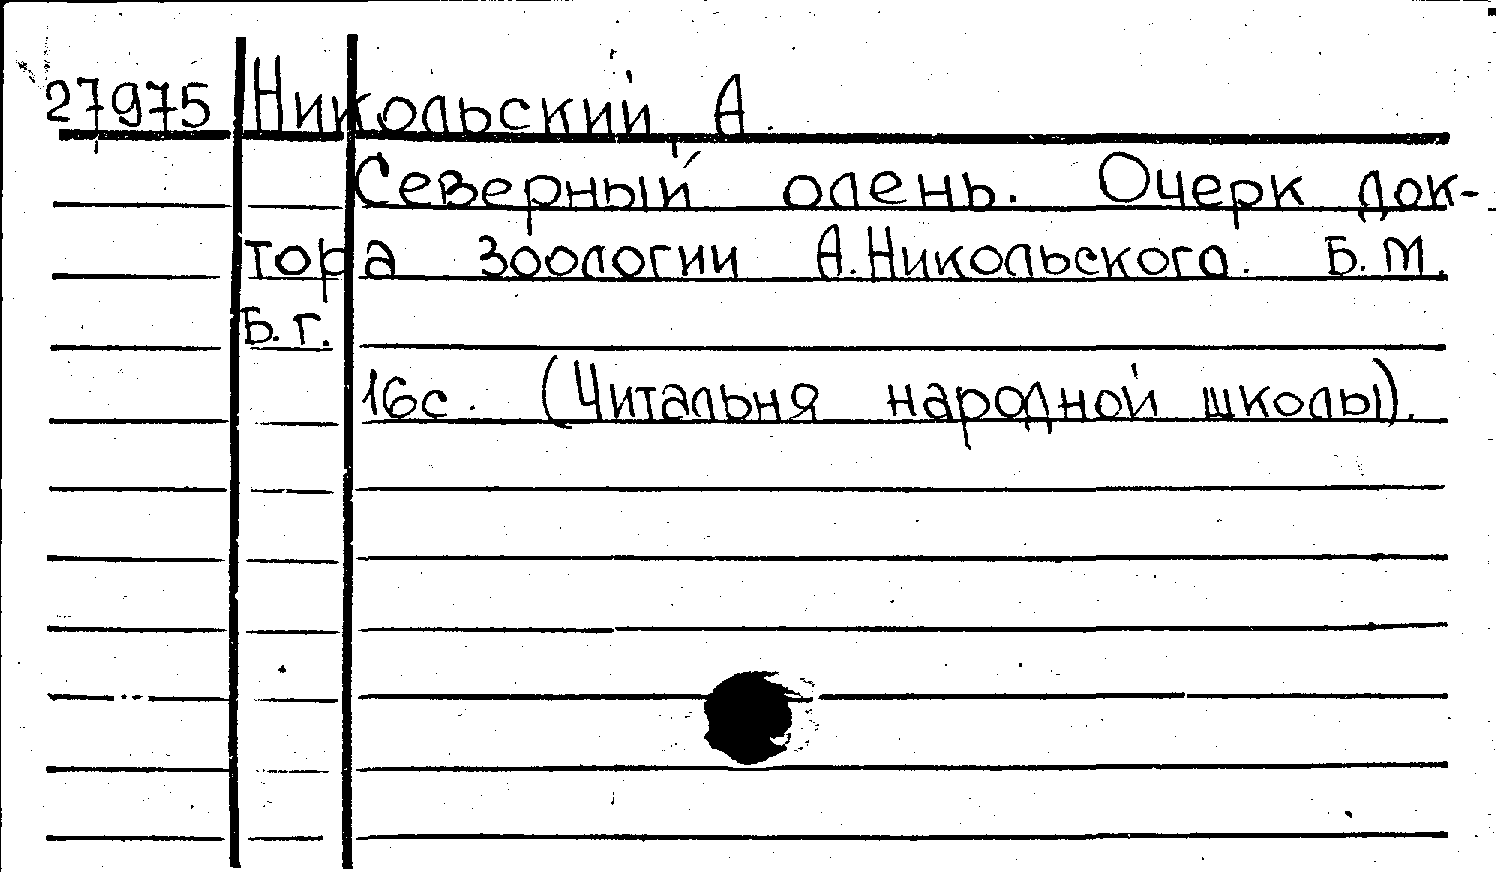 27975 Никольский А.
Северный олень. Очерк док-
тора зоологии А.Никольского. Б.М.
Б.г.
16с. (Читальня народной школы).